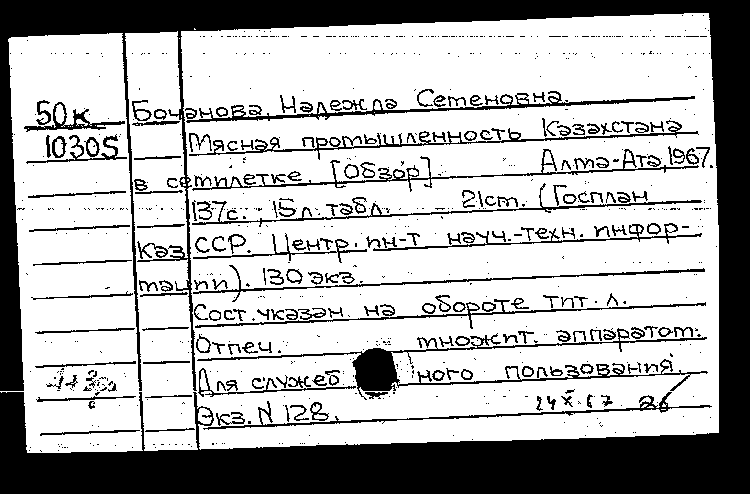 50к Бочанова, Надежда Семеновна.
10305 Мясная промышленность Казахстана
в семилетке. [Обзор] Алма-Ата, 1967.
137с., 15 л. табл. 21см. (Госплан
Каз ССР. Центр. ин-т науч.-техн. инфор-
мации). 130 экз.
Сост. указан. на обороте тит. л.
Отпеч. множит. аппаратом.
Для служебного пользования.
Экз. N 128. 24 X 67 26